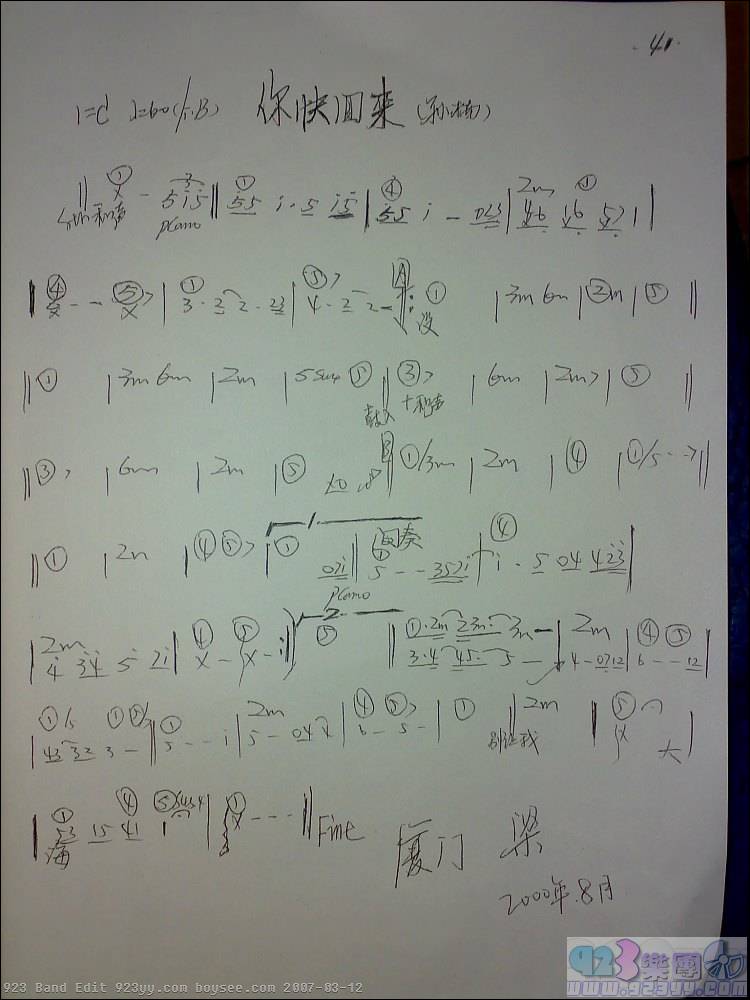 41.
1=C ♩=60 你快回来 (孙楠)
① X - 5i5 ‖ ① 55 i·5 i5 | ④ 55 i - 023 | 2m ① 46 16 571 |
和声 piano
④ X - - ⑤ X > | ① 3·2 2·23 | ⑤> 4·2 2- A ① | 3m 6m | ②m | ⑤ ‖
没
‖ ① | 3m 6m | 2m | 5sus ⑤ ‖ ③> | 6m | 2m> | ⑤ ‖
鼓入 +和声
‖ ③> | 6m | 2m | ⑤ B ‖ ①/3m | 2m | ④ | ①/5 - -> ‖
‖ ① | 2m | ④ ⑤> | 1. ① 07i ‖ 间奏 ① 5 - - 357i | ④ i·5 04 423 |
piano
| 2m 4 34 5 7i | ④ X - ⑤ X - i ‖ 2. ⑤ ‖ ①·2m 23m· 3m - | 2m | ④ ⑤ |
3·4 45· 5 - 4 - 0712 6 - - 12
| ①/5 ① ⑤/ 43 32 3 - ‖ ① 5 - - i | 2m 5 - 04 | ④ ⑤> 6 - 5 - | ① ‖ 2m | ⑤ X 大 |
别让我
‖ ① 53 15 ④ 41 ⑤ 5434 1 | ① X - - - ‖ Fine
海
厦门 梁
2000年.8月
923樂團
www.923yy.com
923 Band Edit 923yy.com boysee.com 2007-03-12